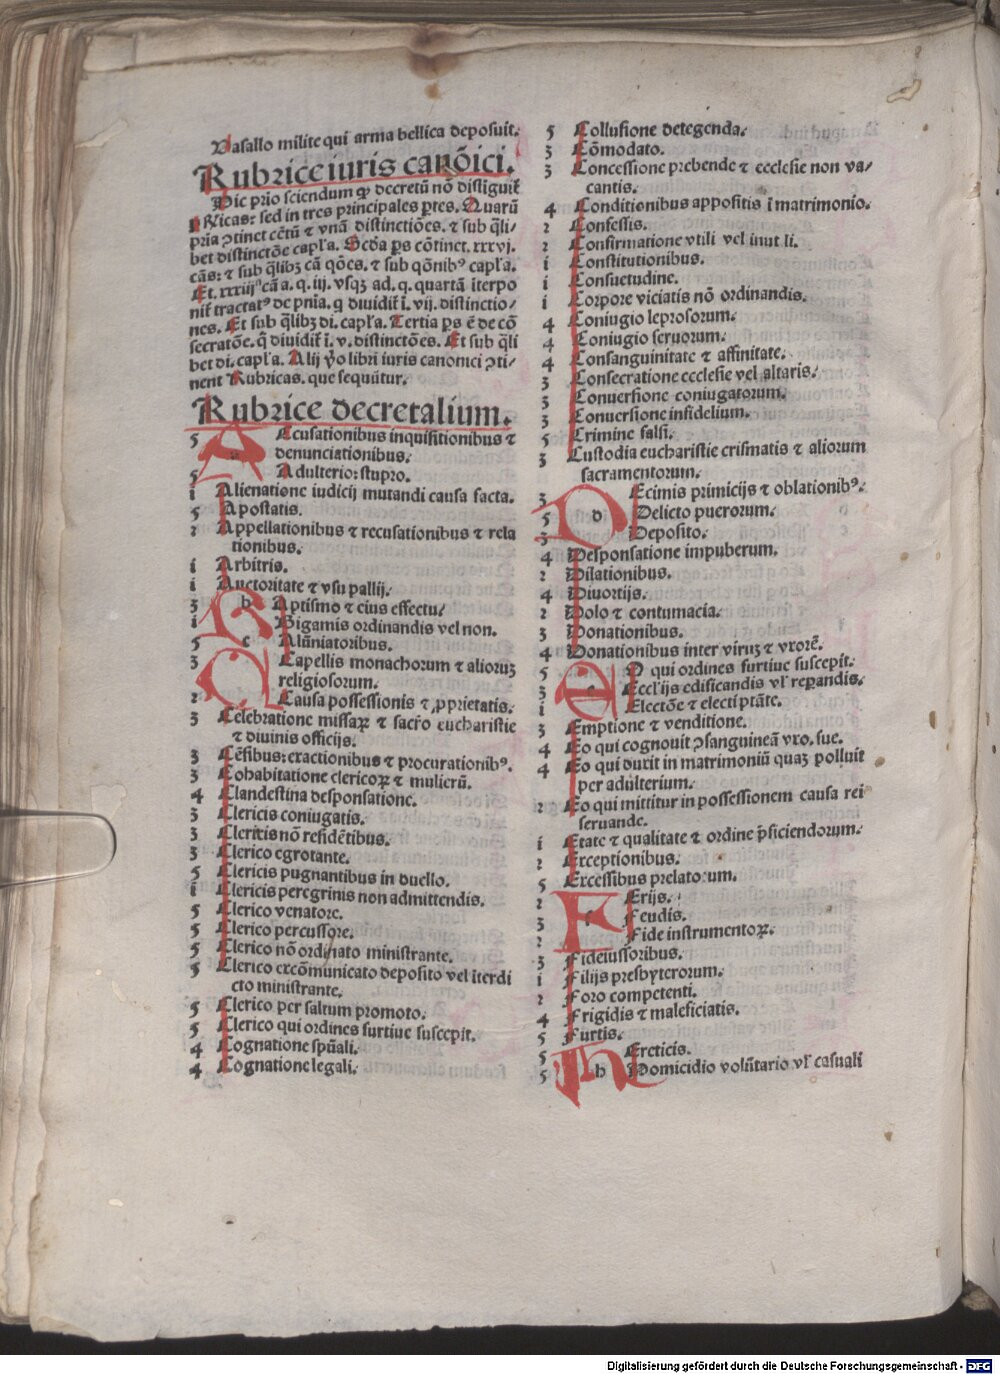 Vasallo milite qui arma bellica deposuit.
Rubrice iuris canõici.
Hic prĩo sciendum ꝙ decretũ nõ distiguit̃
Rubricas: sed in tres principales ptes. Quarũ
pria ꝯtinet cẽtũ ⁊ vnã distinctiões. ⁊ sub q̃li-
bet distinctõe capl'a. Scđa ps cõtinet. xxxvj.
cãs: ⁊ sub q̃libꝫ cã q̃ões. ⁊ sub qõnibꝰ capl'a.
Et. xxxiij cã a. q. iij. vsqꝫ ad. q. quartã iterpo
nit̃ tractatꝰ de pnia. q diuidit̃ ĩ. vij. distinctio/
nes. Et sub q̃libꝫ di. capl'a. Tertia ps ẽ de cõ
secratõe. q̃ diuidit̃ ĩ. v. distinctões. Et sub q̃li
bet di. capl'a. Alij v̾o libri iuris canonici ꝯti/
nent Rubricas. que sequũtur.
Rubrice decretalium.
5 A Ccusationibus inquisitionibus ⁊
denunciationibus.
5 Adulterio: stupro.
i Alienatione iudicij mutandi causa facta.
5 Apostatis.
2 Appellationibus ⁊ recusationibus ⁊ rela
tionibus.
i Arbitris.
i Auctoritate ⁊ vsu pallij.
3 b Aptismo ⁊ eius effectu/
i Bigamis ordinandis vel non.
5 c Alũniatoribus.
3 Capellis monachorum ⁊ alioruꝫ
religiosorum.
2 Causa possessionis ⁊ ꝓprietatis.
3 Celebratione missaꝝ ⁊ sacro eucharistie
⁊ diuinis officijs.
3 Cẽsibus: exactionibus ⁊ procurationibꝰ.
3 Cohabitatione clericoꝝ ⁊ mulierũ.
4 Clandestina desponsatione.
3 Clericis coniugatis.
3 Clericis nõ residẽtibus.
3 Clerico egrotante.
5 Clericis pugnantibus in duello.
i Clericis peregrinis non admittendis.
5 Clerico venatore.
5 Clerico percussore.
5 Clerico nõ ordinato ministrante.
5 Clerico excõmunicato deposito vel iterdi
cto ministrante.
5 Clerico per saltum promoto.
5 Clerico qui ordines furtiue suscepit.
4 Cognatione spũali.
4 Cognatione legali.
5 Collusione detegenda.
3 Cõmodato.
3 Concessione prebende ⁊ ecclesie non va/
cantis.
4 Conditionibus appositis ĩ matrimonio.
2 Confessis.
2 Confirmatione vtili vel inutili.
i Constitutionibus.
i Consuetudine.
i Corpore viciatis nõ ordinandis.
4 Coniugio leprosorum.
4 Coniugio seruorum.
4 Consanguinitate ⁊ affinitate.
3 Consecratione ecclesie vel altaris.
3 Conuersione coniugatorum.
3 Conuersione infidelium.
5 Crimine falsi.
3 Custodia eucharistie crismatis ⁊ aliorum
sacramentorum.
3 Ecimis primicijs ⁊ oblationibꝰ.
5 d Delicto puerorum.
3 Deposito.
4 Desponsatione impuberum.
2 Dilationibus.
4 Diuortijs.
2 Dolo ⁊ contumacia.
3 Donationibus.
4 Donationibus inter viruꝫ ⁊ vxorẽ.
5 O qui ordines furtiue suscepit.
3 e Eccl'ijs edificandis vl' reꝑandis.
i Electõe ⁊ electi ptãte.
3 Emptione ⁊ venditione.
4 Eo qui cognouit ꝯsanguineã vxo. sue.
4 Eo qui duxit in matrimoniũ quaꝫ polluit
per adulterium.
2 Eo qui mittitur in possessionem causa rei
seruande.
i Etate ⁊ qualitate ⁊ ordine p̃ficiendorum.
2 Exceptionibus.
5 Excessibus prelatorum.
2 Erijs.
3 f Feudis.
2 Fide instrumentoꝝ.
3 Fideiussoribus.
i Filijs presbyterorum.
2 Foro competenti.
4 Frigidis ⁊ maleficiatis.
5 Furtis.
5 Ereticis.
5 h Homicidio volũtario vl' casuali
Digitalisierung gefördert durch die Deutsche Forschungsgemeinschaft - DFG